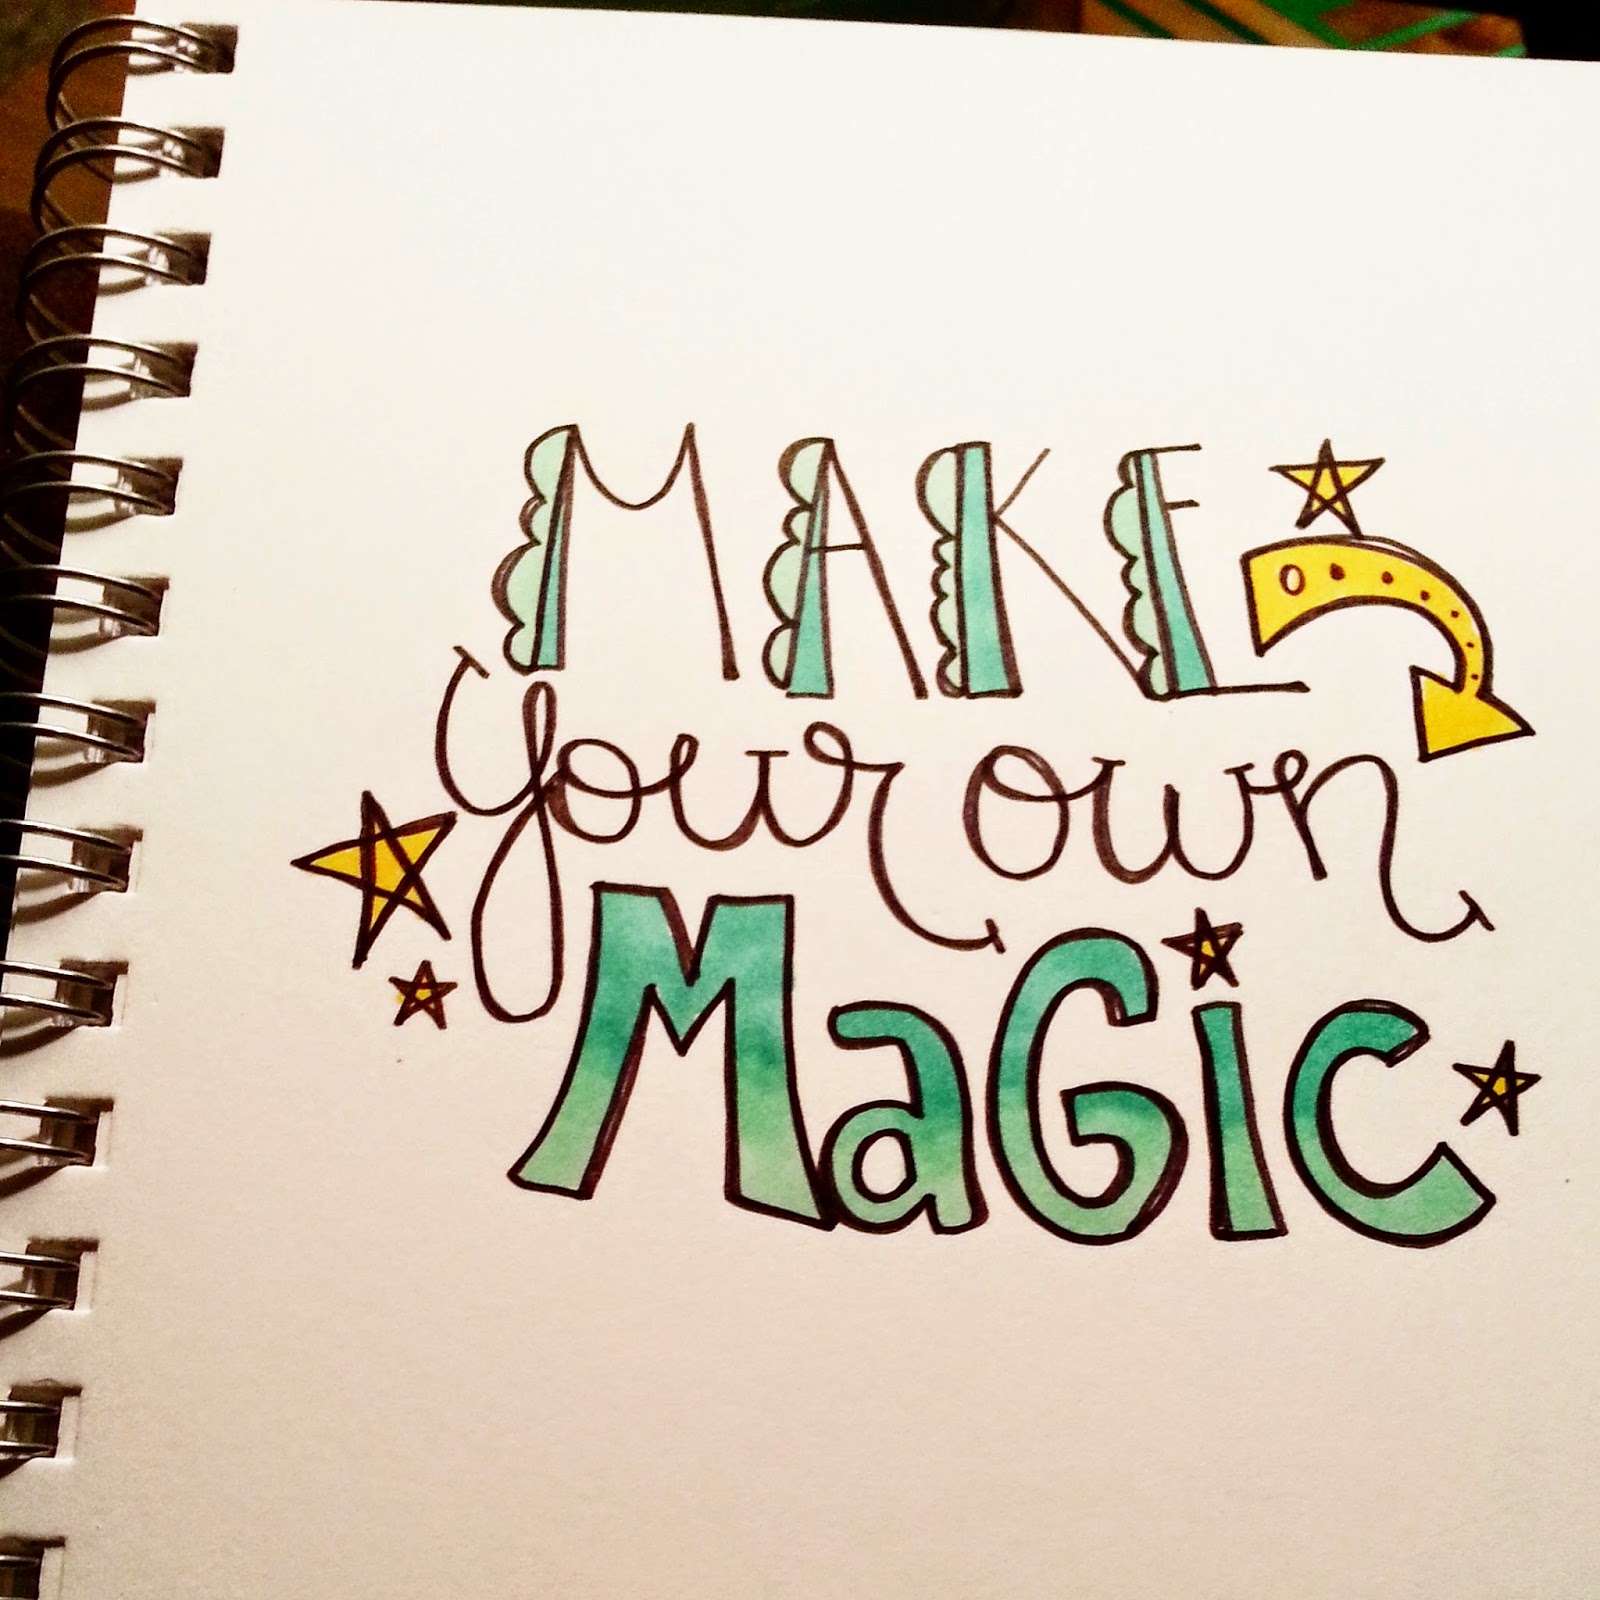 MAKE
your own
MaGic